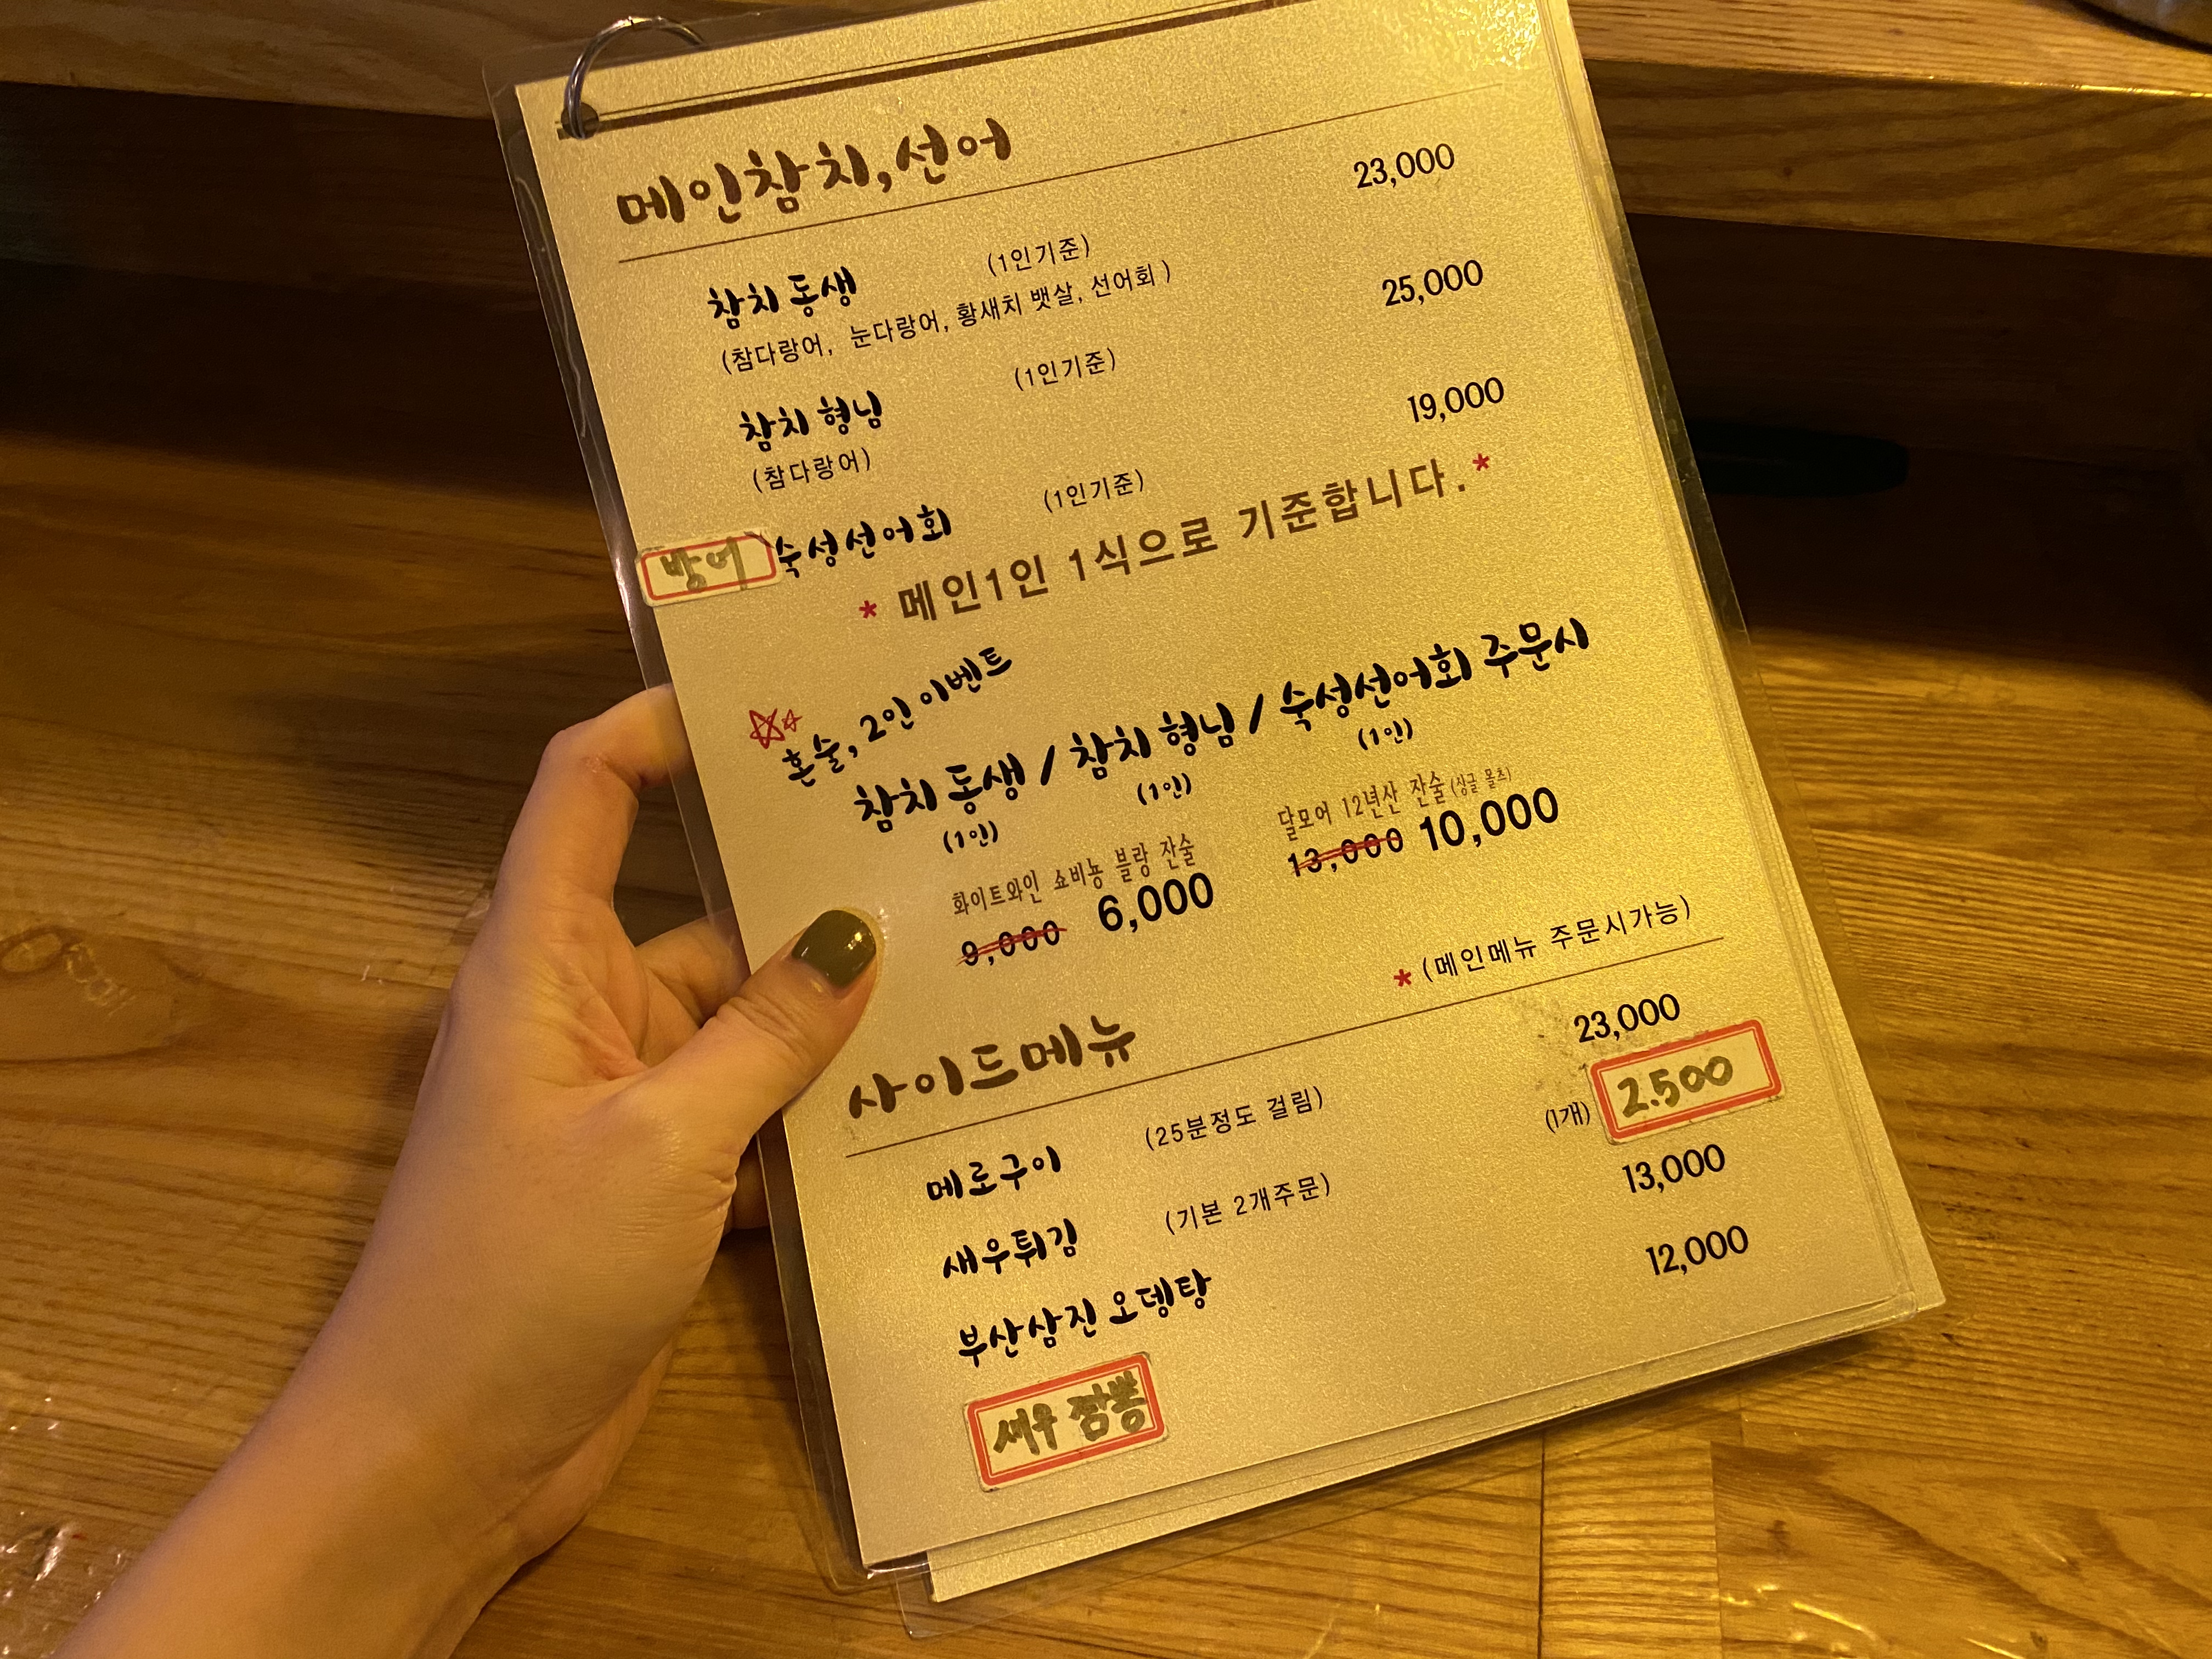 메인참치,선어
참치 동생 (1인기준) 23,000
(참다랑어, 눈다랑어, 황새치 뱃살, 선어회)
참치 형님 (1인기준) 25,000
(참다랑어)
방어 숙성선어회 (1인기준) 19,000
* 메인1인 1식으로 기준합니다. *
혼술, 2인 이벤트
참치 동생 / 참치 형님 / 숙성선어회 주문시
(1인) (1인) (1인)
화이트와인 쇼비뇽 블랑 잔술
9,000 6,000
달모어 12년산 잔술 (싱글 몰츠)
13,000 10,000
사이드메뉴 * (메인메뉴 주문시가능)
메로구이 (25분정도 걸림) 23,000
새우튀김 (기본 2개주문) (1개) 2.500
부산삼진 오뎅탕 13,000
새우 짬뽕 12,000